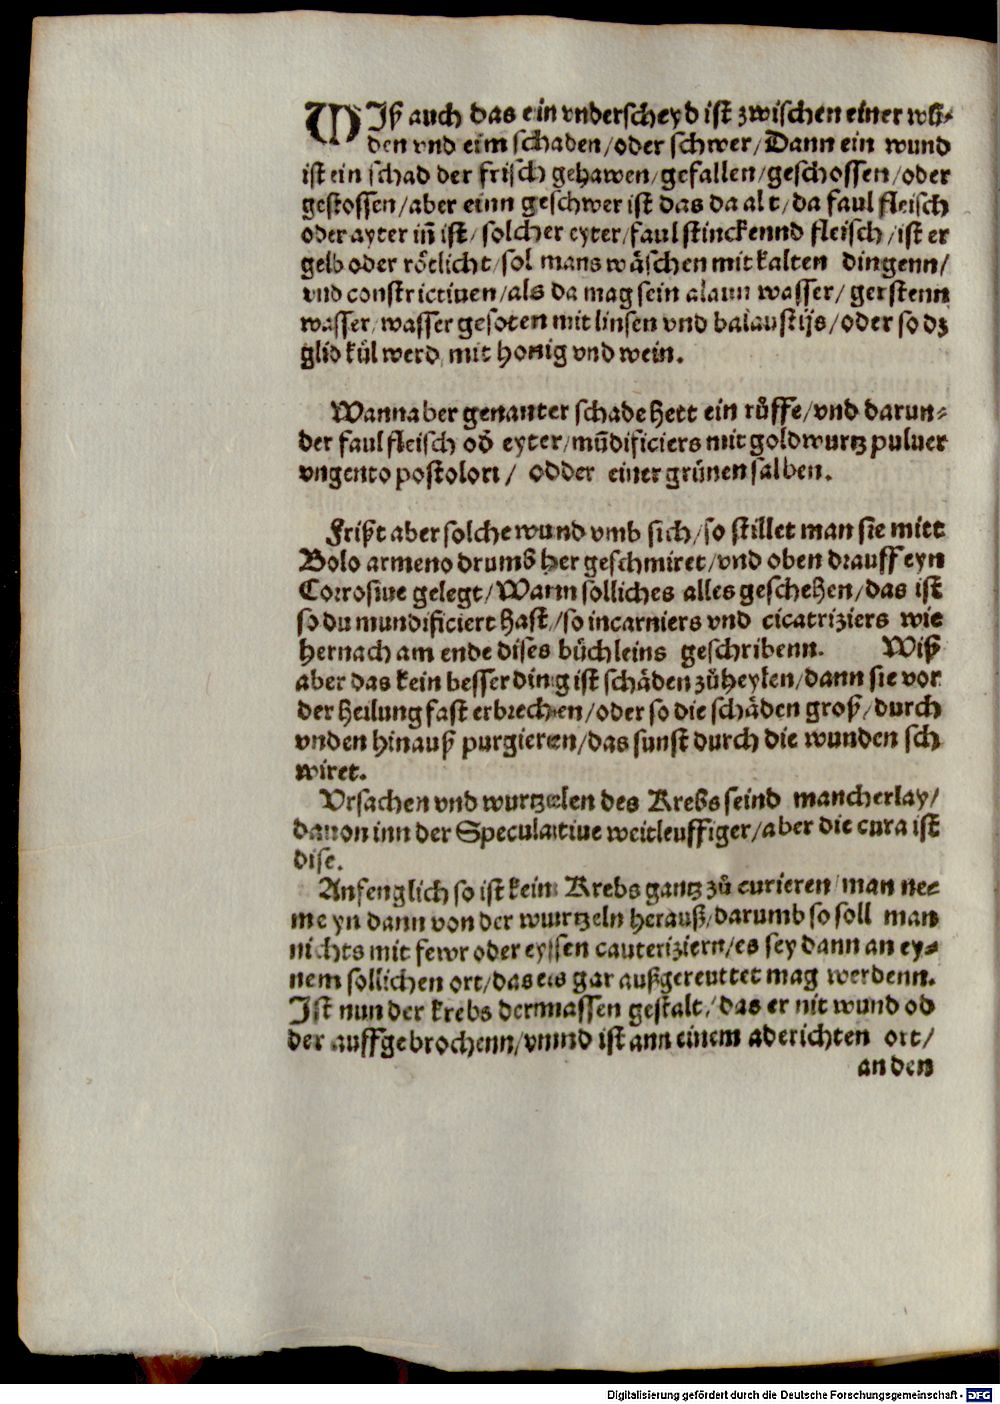 WJß auch das ein vnderscheyd ist zwischen einer wū-
den vnd eim schaden/oder schwer/Dann ein wund
ist ein schad der frisch gehawen/gefallen/geschossen/oder
gestossen/aber einn geschwer ist das da alt/da faul fleisch
oder ayter iñ ist/solcher eyter/faul stinckennd fleisch/ist er
gelb oder rötlicht/sol mans wäschen mit kalten dingenn/
vnd constrictiuen/als da mag sein alaun wasser/gerstenn
wasser/wasser gesoten mit linsen vnd balaustijs/oder so dz
glid kül werd mit honig vnd wein.
Wann aber genanter schade hett ein růffe/vnd darun-
der faul fleisch od̄ eyter/mūdificiers mit goldwurtz puluer
vngento postolori/ odder einer grünen salben.
Frißt aber solche wund vmb sich/so stillet man sie mitt
Bolo armeno drumb her geschmiret/vnd oben drauff eyn
Corrosiue gelegt/Wann solliches alles geschehen/das ist
so du mundificiert hast/so incarniers vnd cicatriziers wie
hernach am ende dises büchleins geschribenn. Wiß
aber das kein besser ding ist schäden zůheylen/dann sie vor
der heilung fast erbrechen/oder so die schäden groß/durch
vnden hinauß purgieren/das sunst durch die wunden sch
wiret.
Vrsachen vnd wurtzelen des Krebs seind mancherlay/
dauon inn der Speculatiue weitleuffiger/aber die cura ist
dise.
Anfenglich so ist kein Krebs gantz zů curieren man ne-
me yn dann von der wurtzeln herauß/darumb so soll man
nichts mit fewr oder eyssen cauteriziern/es sey dann an ey-
nem sollichen ort/das es gar außgereuttet mag werdenn.
Jst nun der krebs dermassen gestalt/das er nit wund od
der auffgebrochenn/vnnd ist ann einem aderichten ort/
an den
Digitalisierung gefördert durch die Deutsche Forschungsgemeinschaft - DFG